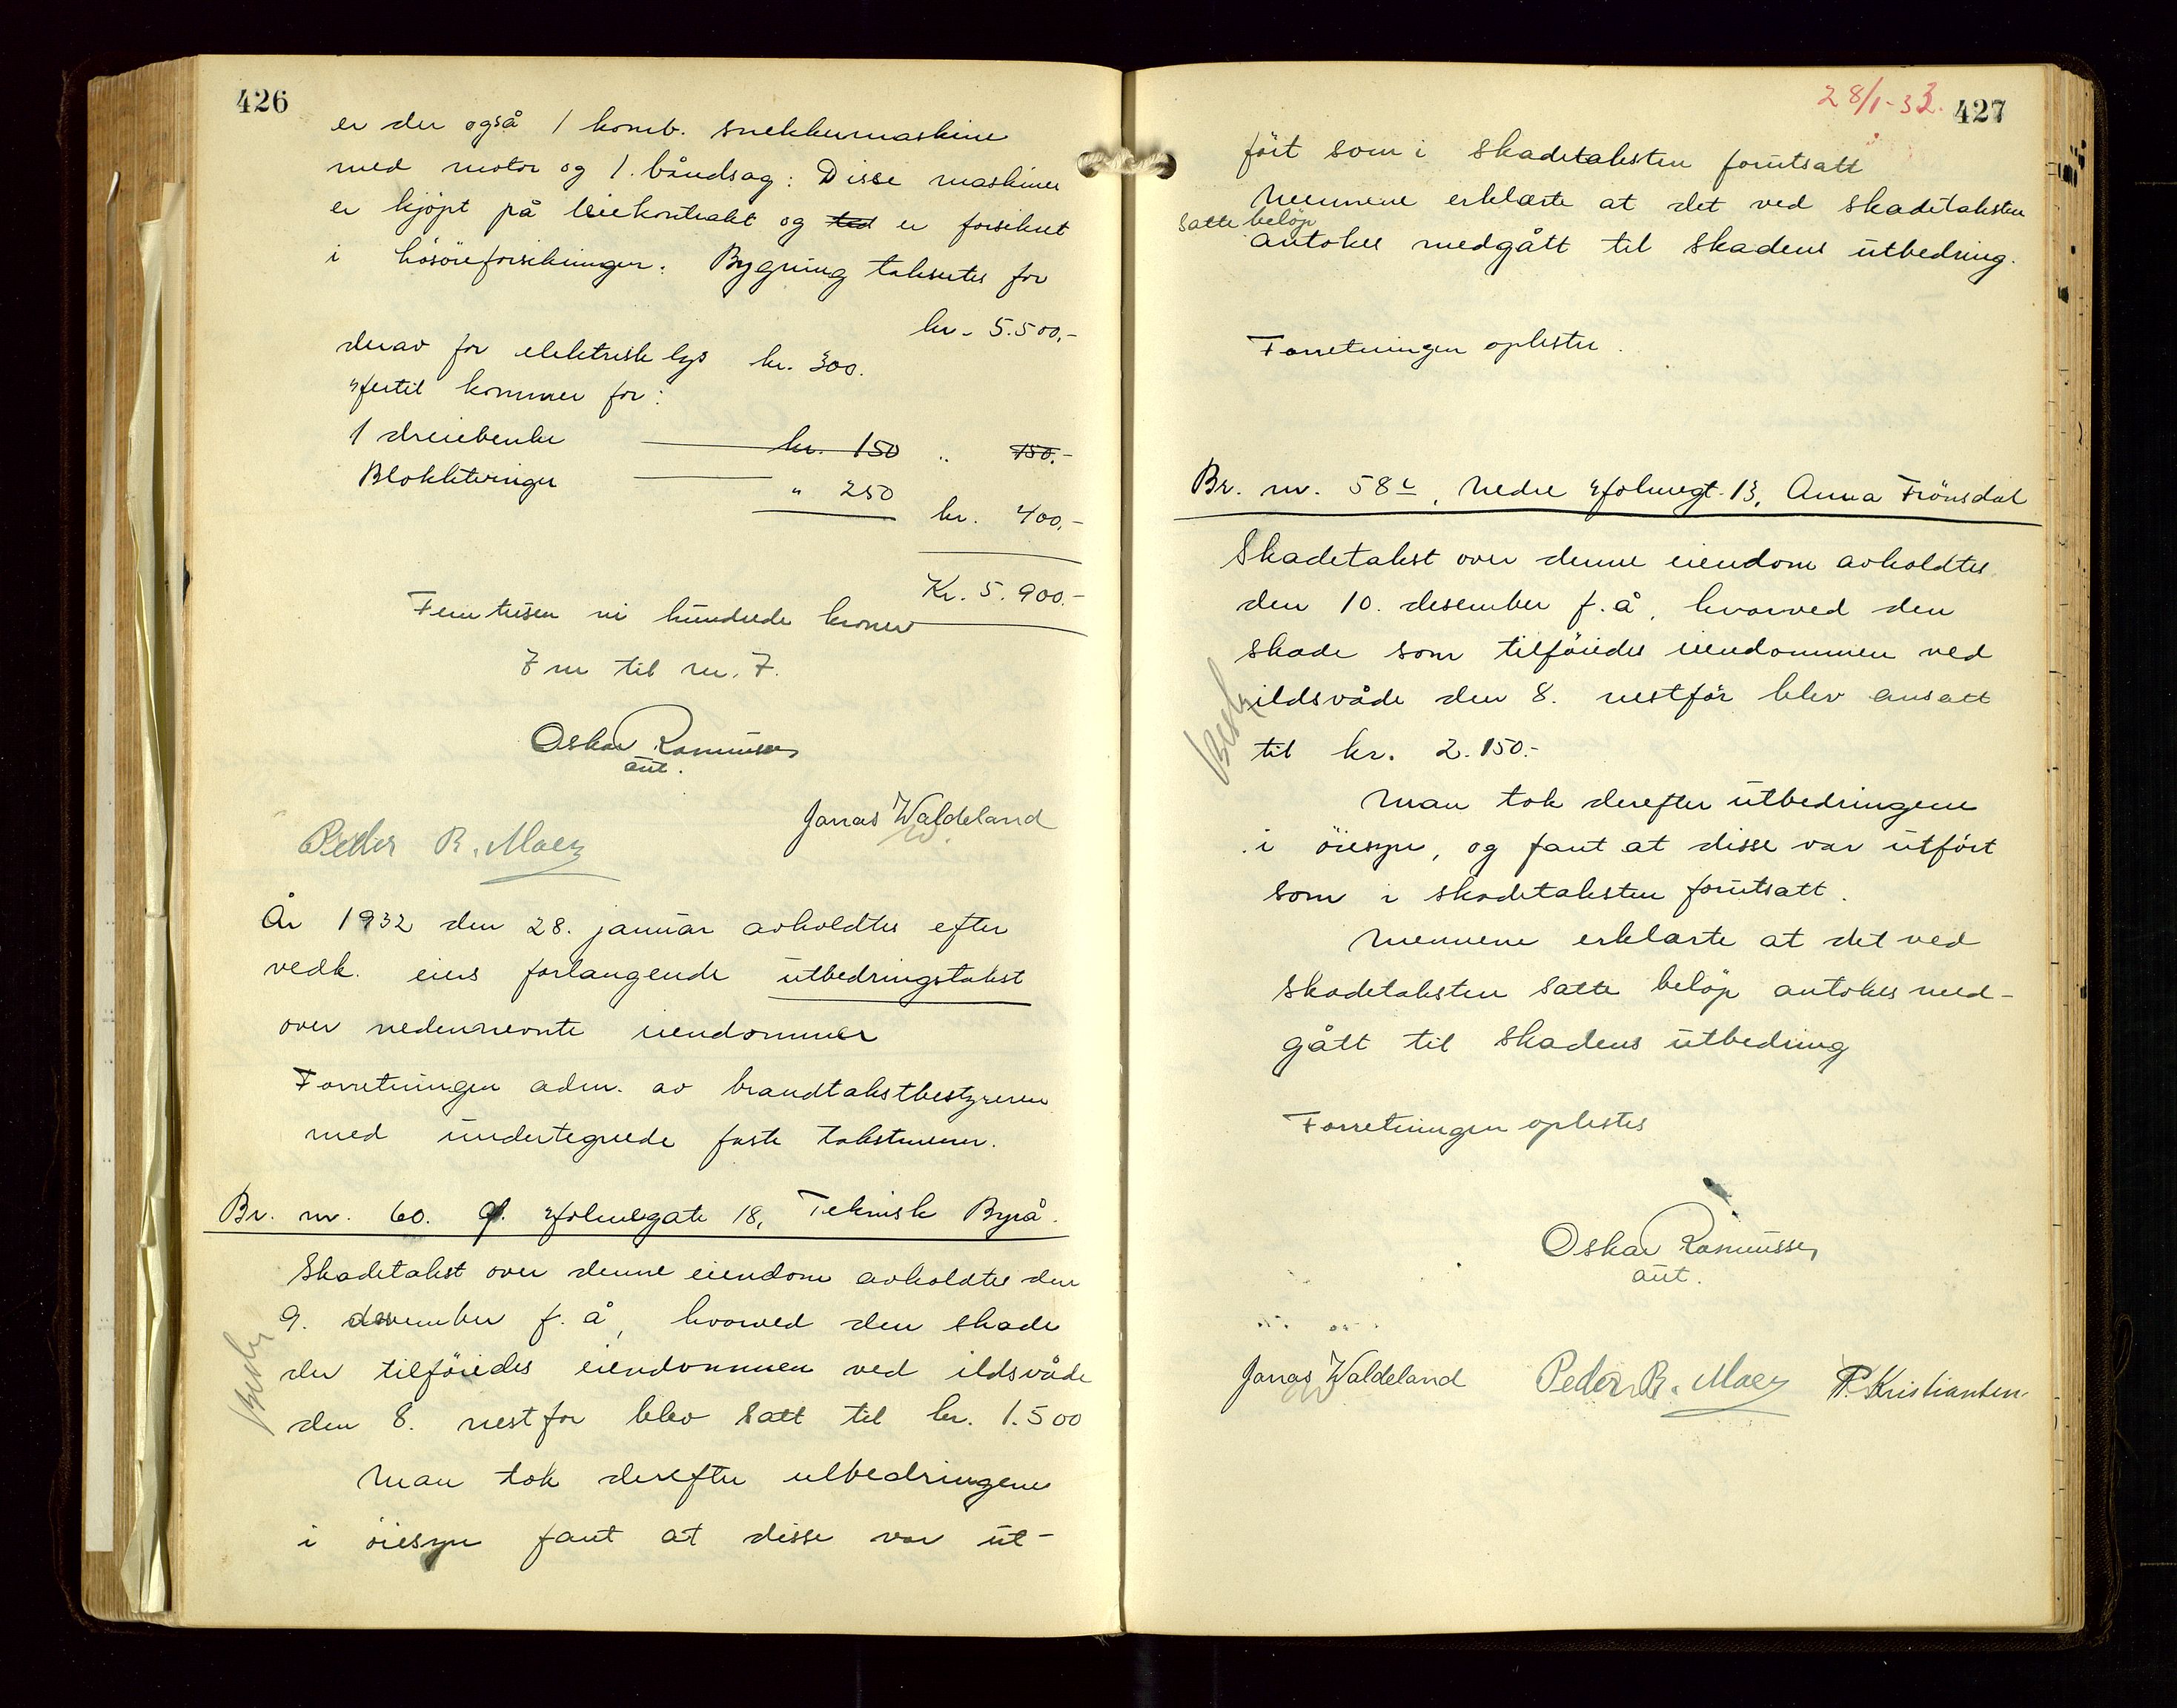 426
er der også 1 komb. snekkermaskine
med motor og 1. båndsag. Disse maskiner
er kjöpt på leiekontrakt og ted er forsikret
i lösöreforsikringen. Bygning takseres for
kr. 5.500,-
derav for elektrisk lys kr. 300.
Hertil kommer for:
1 dreiebenk kr. 150 " 150.-
Blokkterninger " 250
kr. 400,-
Kr. 5.900.-
Fem tusen ni hundrede kroner
7 m til nr. 7.
Oskar Rasmussen
aut.
Jonas Waldeland
Peder R. Moey
År 1932 den 28. januar avholdtes efter
vedk. eiers forlangende utbedringstakst
over nedennevnte eiendommer
Forretningen adm. av brandtakstbestyreren
med undertegnede faste takstmenn.
Br. nr. 60. Ø. Holmegate 18, Teknisk Byrå.
Skadetakst over denne eiendom avholdtes den
9. desember f. å, hvorved den skade
der tilföiedes eiendommen ved ildsvåde
den 8. nestfor blev satt til kr. 1.500
Man tok derefter utbedringene
i öiesyn fant at disse var ut-
28/1-32. 427
fört som i skadetaksten forutsatt
Mennene erklærte at det ved skadetaksten
satte beløp
antokes medgått til skadens utbedring.
Forretningen oplestes.
Br. nr. 58c, Nedre Holmegt. 13, Anna Frönsdal
Skadetakst over denne eiendom avholdtes
den 10. desember f. å, hvorved den
skade som tilföiedes eiendommen ved
ildsvåde den 8. nestför blev ansatt
til kr. 2.150.-
Man tok derefter utbedringene
i öiesyn, og fant at disse var utfört
som i skadetaksten forutsatt.
Mennene erklærte at det ved
skadetaksten satte belöp antokes med-
gått til skadens utbedring
Forretningen oplestes
Oskar Rasmussen
aut.
Jonas Waldeland Peder R. Moey P. Kristiansen